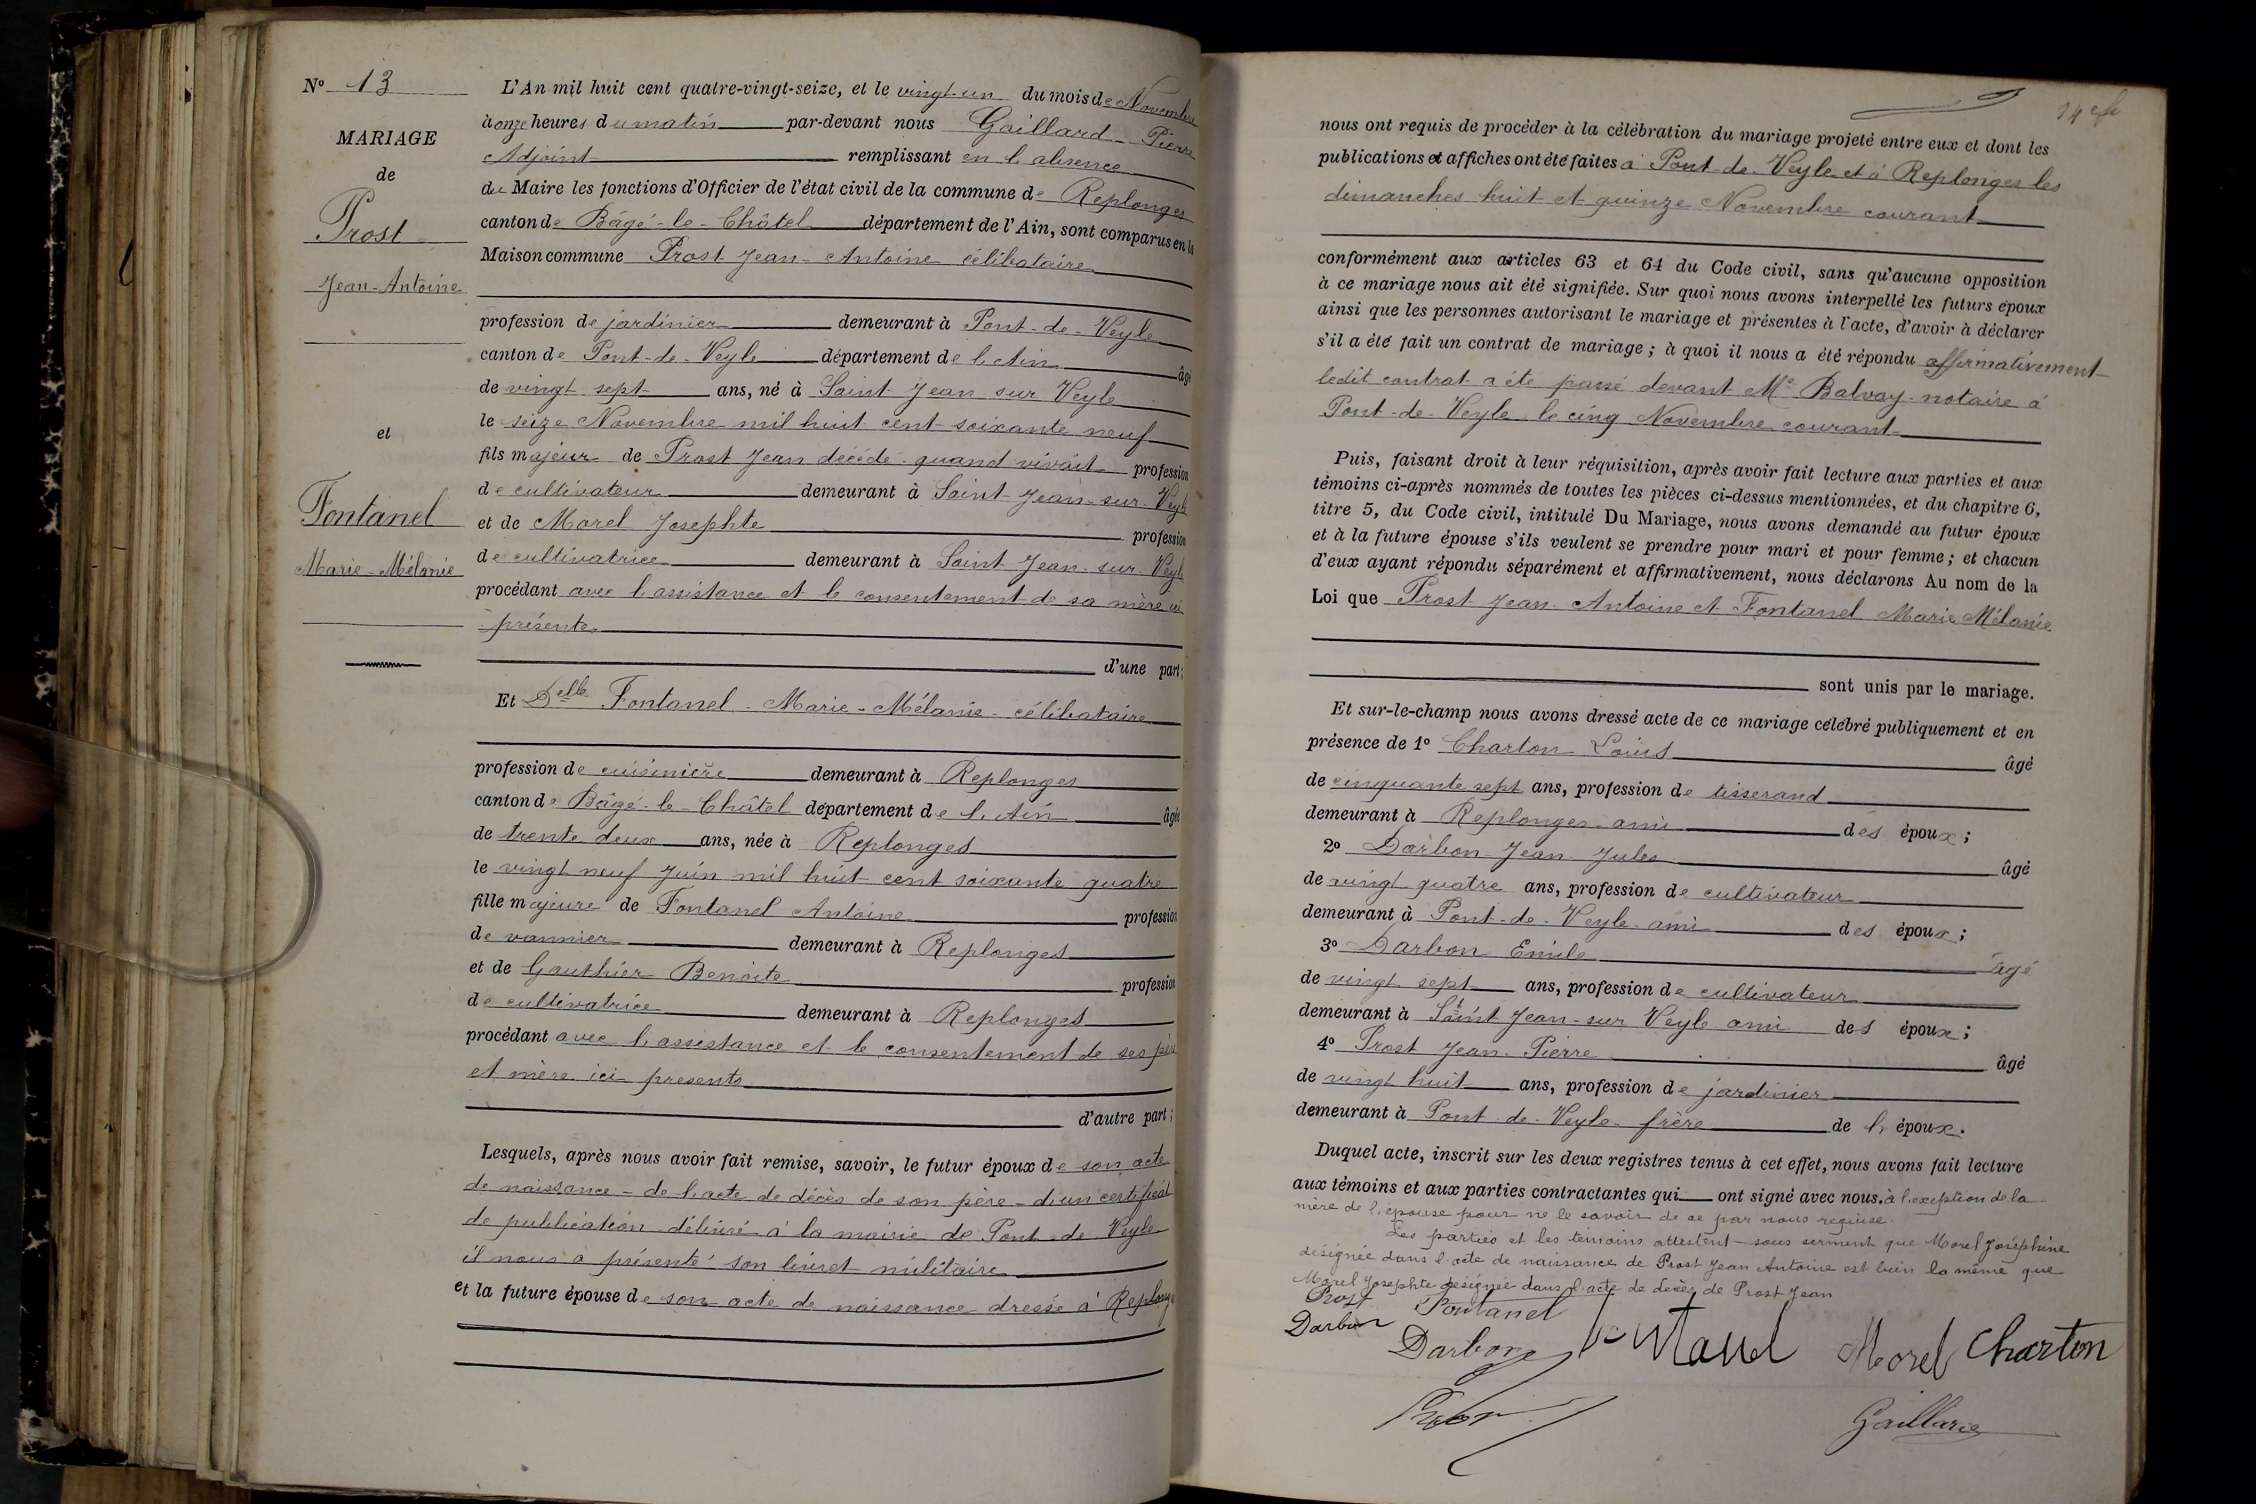 Nº 13
MARIAGE
de
Prost
Jean-Antoine
et
Fontanel
Marie-Mélanie
L'An mil huit cent quatre-vingt-seize, et le vingt-un du mois de Novembre
à onze heures du matin par-devant nous Gaillard Pierre
Adjoint remplissant en l'absence
du Maire les fonctions d'Officier de l'état civil de la commune de Replonges
canton de Bâgé-le-Châtel département de l'Ain, sont comparus en la
Maison commune Prost Jean-Antoine célibataire
profession de jardinier demeurant à Pont-de-Veyle
canton de Pont-de-Veyle département de l'Ain âgé
de vingt sept ans, né à Saint Jean sur Veyle
le seize Novembre mil huit cent soixante neuf
fils majeur de Prost Jean décédé quand vivait profession
de cultivateur demeurant à Saint-Jean-sur-Veyle
et de Morel Josephte profession
de cultivatrice demeurant à Saint Jean-sur-Veyle
procédant avec l'assistance et le consentement de sa mère ici
présente
d'une part;
Et Delle Fontanel-Marie-Mélanie-célibataire
profession de cuisinière demeurant à Replonges
canton de Bâgé-le-Châtel département de l'Ain âgée
de trente deux ans, née à Replonges
le vingt neuf Juin mil huit cent soixante quatre
fille majeure de Fontanel Antoine profession
de vannier demeurant à Replonges
et de Gauthier Benoite profession
de cultivatrice demeurant à Replonges
procédant avec l'assistance et le consentement de ses père
et mère ici presents
d'autre part;
Lesquels, après nous avoir fait remise, savoir, le futur époux de son acte
de naissance - de l'acte de décès de son père - d'un certificat
de publication délivré à la mairie de Pont-de-Veyle
il nous a présenté son livret militaire
et la future épouse de son acte de naissance dressé à Replonges
nous ont requis de procéder à la célébration du mariage projeté entre eux et dont les
publications et affiches ont été faites à Pont-de-Veyle et à Replonges les
dimanches huit et quinze Novembre courant
conformément aux articles 63 et 64 du Code civil, sans qu'aucune opposition
à ce mariage nous ait été signifiée. Sur quoi nous avons interpellé les futurs époux
ainsi que les personnes autorisant le mariage et présentes à l'acte, d'avoir à déclarer
s'il a été fait un contrat de mariage; à quoi il nous a été répondu affirmativement
ledit contrat a été passé devant Me Balvay notaire à
Pont-de-Veyle le cinq Novembre courant
Puis, faisant droit à leur réquisition, après avoir fait lecture aux parties et aux
témoins ci-après nommés de toutes les pièces ci-dessus mentionnées, et du chapitre 6,
titre 5, du Code civil, intitulé Du Mariage, nous avons demandé au futur époux
et à la future épouse s'ils veulent se prendre pour mari et pour femme; et chacun
d'eux ayant répondu séparément et affirmativement, nous déclarons Au nom de la
Loi que Prost Jean-Antoine et Fontanel Marie Mélanie
sont unis par le mariage.
Et sur-le-champ nous avons dressé acte de ce mariage célébré publiquement et en
présence de 1º Charton Louis âgé
de cinquante sept ans, profession de tisserand
demeurant à Replonges ami des époux;
2º Darbon Jean Jules âgé
de vingt quatre ans, profession de cultivateur
demeurant à Pont-de-Veyle ami des époux;
3º Darbon Emile âgé
de vingt sept ans, profession de cultivateur
demeurant à Saint Jean-sur Veyle ami des époux;
4º Prost Jean-Pierre âgé
de vingt huit ans, profession de jardinier
demeurant à Pont-de-Veyle frère de l'époux.
Duquel acte, inscrit sur les deux registres tenus à cet effet, nous avons fait lecture
aux témoins et aux parties contractantes qui ont signé avec nous. à l'exeption de la
mère de l'épouse pour ne le savoir de ce par nous requise.
Les parties et les temoins attestent sous serment que Morel Joséphine
désignée dans l'acte de naissance de Prost Jean Antoine est bien la même que
Morel Josephte désignée dans l'acte de décès de Prost Jean
Prost Fontanel
Darbon Darbon Morel Charton
Gaillard